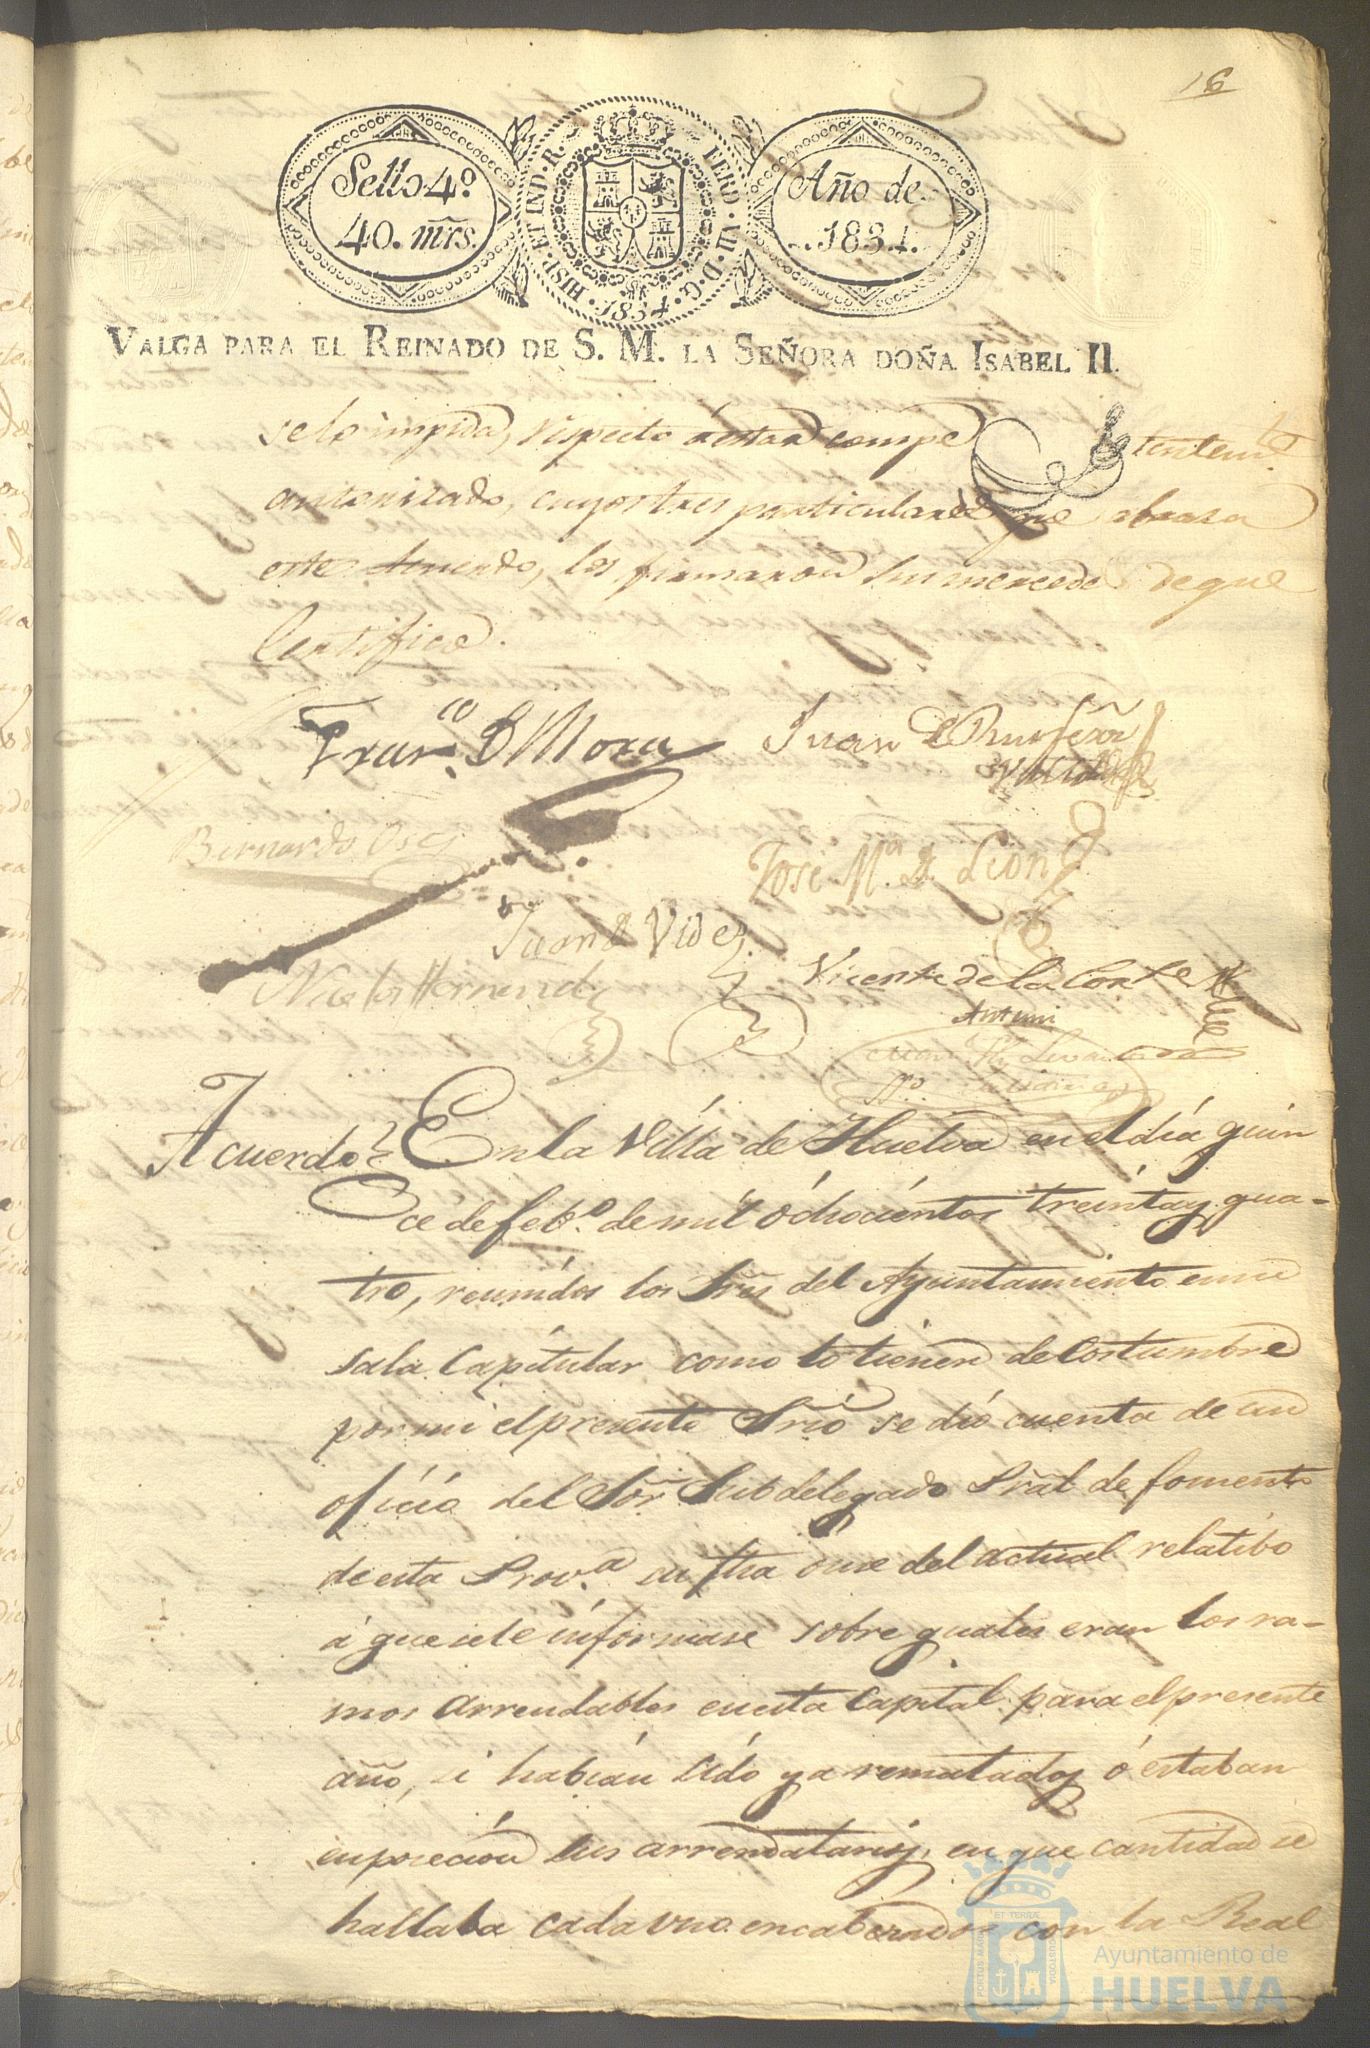 16
Sello 4º
40. mrs.
HISP. ET IND. R. FERD. VII. D. G. 1834.
Año de
1834.
VALGA PARA EL REINADO DE S. M. LA SEÑORA DOÑA ISABEL II.
se lo impida, respecto á estar compe tentemte
autorizado, cuyos tres particulares que abraza
este Acuerdo, los firmaron sus mercedes de que
Certifico.
Franco. D Mora
Juan
Bernardo
José Mª D. León
Juan D Vides
Nicolas Hernandz
Vicente de la Corte
Antemi
Acuerdo En la Villa de Huelva en el día quin
ce de febº. de mil óchocientos treinta y qua-
tro, reunidos los Sres del Ayuntamiento en su
sala Capitular como lo tienen de costumbre
por mi el presente Srio se dio cuenta de un
oficio del Sor Subdelegado Pral de fomento
de esta Provª. su fha once del actual relatibo
á que se le informase sobre quales eran los ra-
mos arrendables en esta Capital para el presente
año, si habian sido ya rematados ó estaban
en posecion sus arrendatarios, en que cantidad se
hallaba cada uno encabezados con la Real
PORTUS MARIS ET TERRAE CUSTODIA
Ayuntamiento de
HUELVA